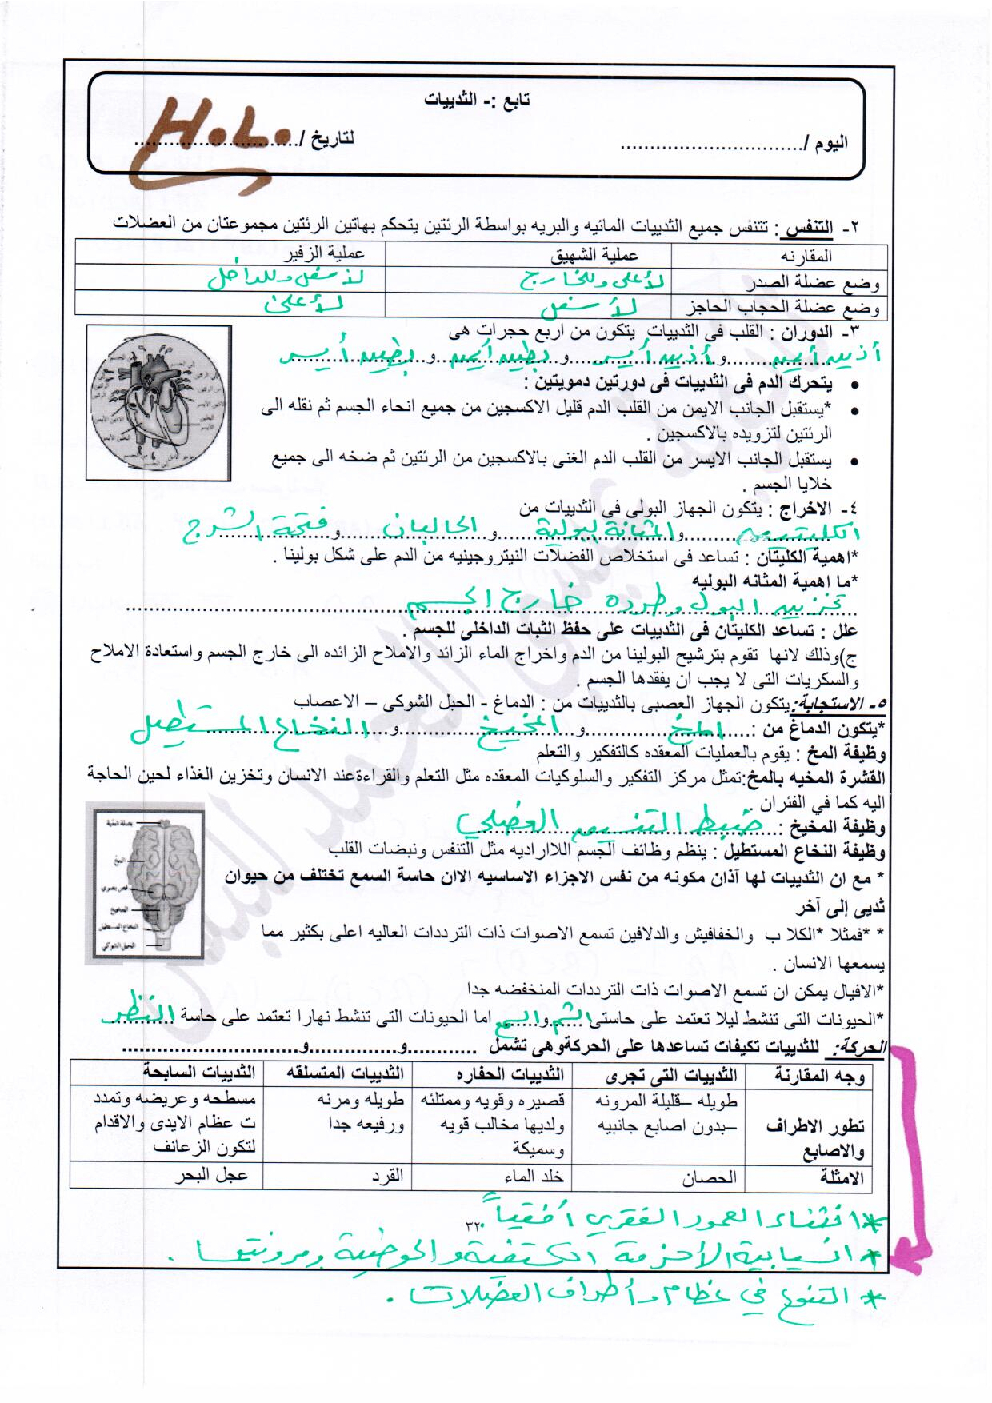 تابع :- الثدييات
اليوم /............................... لتاريخ /............................
H.L.
٢- التنفس : تتنفس جميع الثدييات المائيه والبريه بواسطة الرئتين يتحكم بهاتين الرئتين مجموعتان من العضلات
المقارنه عملية الشهيق عملية الزفير
وضع عضلة الصدر لأعلى وللخارج لأسفل وللداخل
وضع عضلة الحجاب الحاجز لأسفل لأعلى
٣- الدوران : القلب فى الثدييات يتكون من اربع حجرات هى
أذين أيمن و أذين أيسر و بطين أيمن و بطين أيسر
يتحرك الدم فى الثدييات فى دورتين دمويتين :
*يستقبل الجانب الايمن من القلب الدم قليل الاكسجين من جميع انحاء الجسم ثم نقله الى
الرئتين لتزويده بالاكسجين .
يستقبل الجانب الايسر من القلب الدم الغنى بالاكسجين من الرئتين ثم ضخه الى جميع
خلايا الجسم .
٤- الاخراج : يتكون الجهاز البولى فى الثدييات من
الكليتين و المثانة البولية و الحالبان و فتحة الشرج
*اهمية الكليتان : تساعد فى استخلاص الفضلات النيتروجينيه من الدم على شكل بولينا .
*ما اهمية المثانه البوليه
تخزين البول وطرده خارج الجسم
علل : تساعد الكليتان فى الثدييات على حفظ الثبات الداخلى للجسم .
ج)وذلك لانها تقوم بترشيح البولينا من الدم واخراج الماء الزائد والاملاح الزائده الى خارج الجسم واستعادة الاملاح
والسكريات التى لا يجب ان يفقدها الجسم .
٥- الاستجابة: يتكون الجهاز العصبى بالثدييات من : الدماغ - الحبل الشوكي – الاعصاب
*يتكون الدماغ من : المخ و المخيخ و النخاع المستطيل
وظيفة المخ : يقوم بالعمليات المعقده كالتفكير والتعلم
القشرة المخيه بالمخ:تمثل مركز التفكير والسلوكيات المعقده مثل التعلم والقراءةعند الانسان وتخزين الغذاء لحين الحاجة
اليه كما في الفئران .
وظيفة المخيخ : ضبط التنسيق العضلي
وظيفة النخاع المستطيل : ينظم وظائف الجسم اللااراديه مثل التنفس ونبضات القلب
* مع ان الثدييات لها آذان مكونه من نفس الاجزاء الاساسيه الاان حاسة السمع تختلف من حيوان
ثديى إلى آخر
* *فمثلا *الكلا ب والخفافيش والدلافين تسمع الاصوات ذات الترددات العاليه اعلى بكثير مما
يسمعها الانسان .
*الافيال يمكن ان تسمع الاصوات ذات الترددات المنخفضه جدا
*الحيونات التى تنشط ليلا تعتمد على حاستى الشم و السمع اما الحيونات التى تنشط نهارا تعتمد على حاسة النظر
الحركة: للثدييات تكيفات تساعدها على الحركةوهى تشمل ............و...............و...............................
وجه المقارنة الثدييات التى تجرى الثدييات الحفاره الثدييات المتسلقه الثدييات السابحة
تطور الاطراف والاصابع طويله –قليلة المرونه –بدون اصابع جانبيه قصيره وقويه وممتلئه ولديها مخالب قويه وسميكة طويله ومرنه ورفيعه جدا مسطحه وعريضه وتمدد ت عظام الايدى والاقدام لتكون الزعانف
الامثلة الحصان خلد الماء القرد عجل البحر
* انثناء العمود الفقري أفقياً
٣٢
* انسيابية الأحزمة الكتفية والحوضية ومرونتها .
* التنوع في عظام وأطراف العضلات .